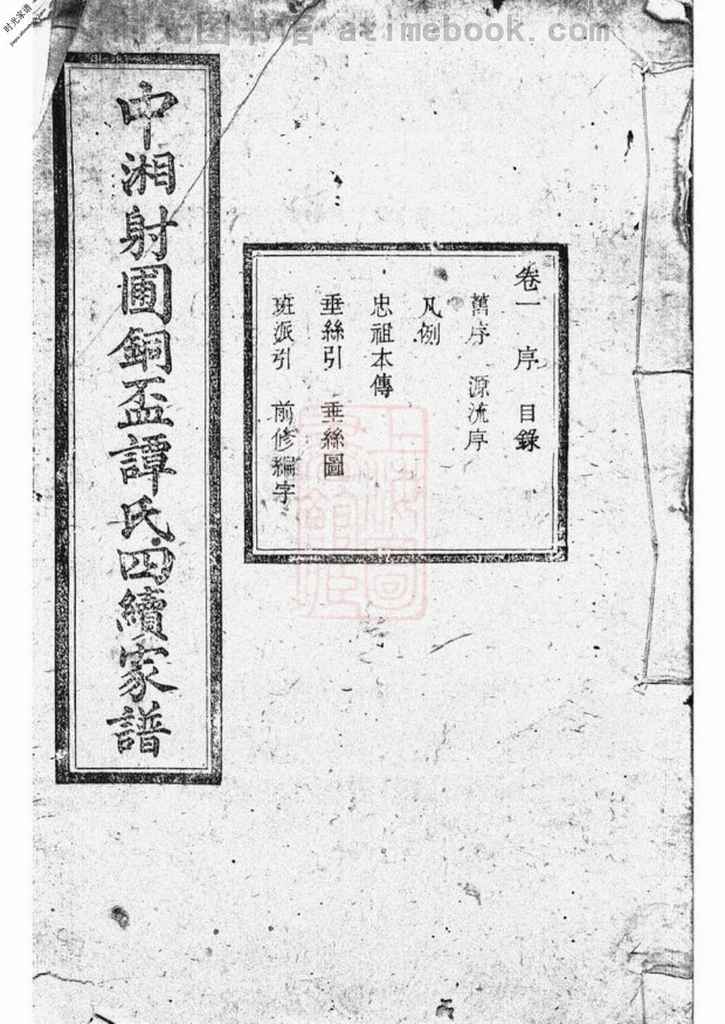 时光图书馆 atimebook.com
时光家谱
中湘射圃銅盃譚氏四續家譜
卷一 序 目錄
舊序 源流序
凡例
忠祖本傳
垂絲引 垂絲圖
班派引 前修綸字